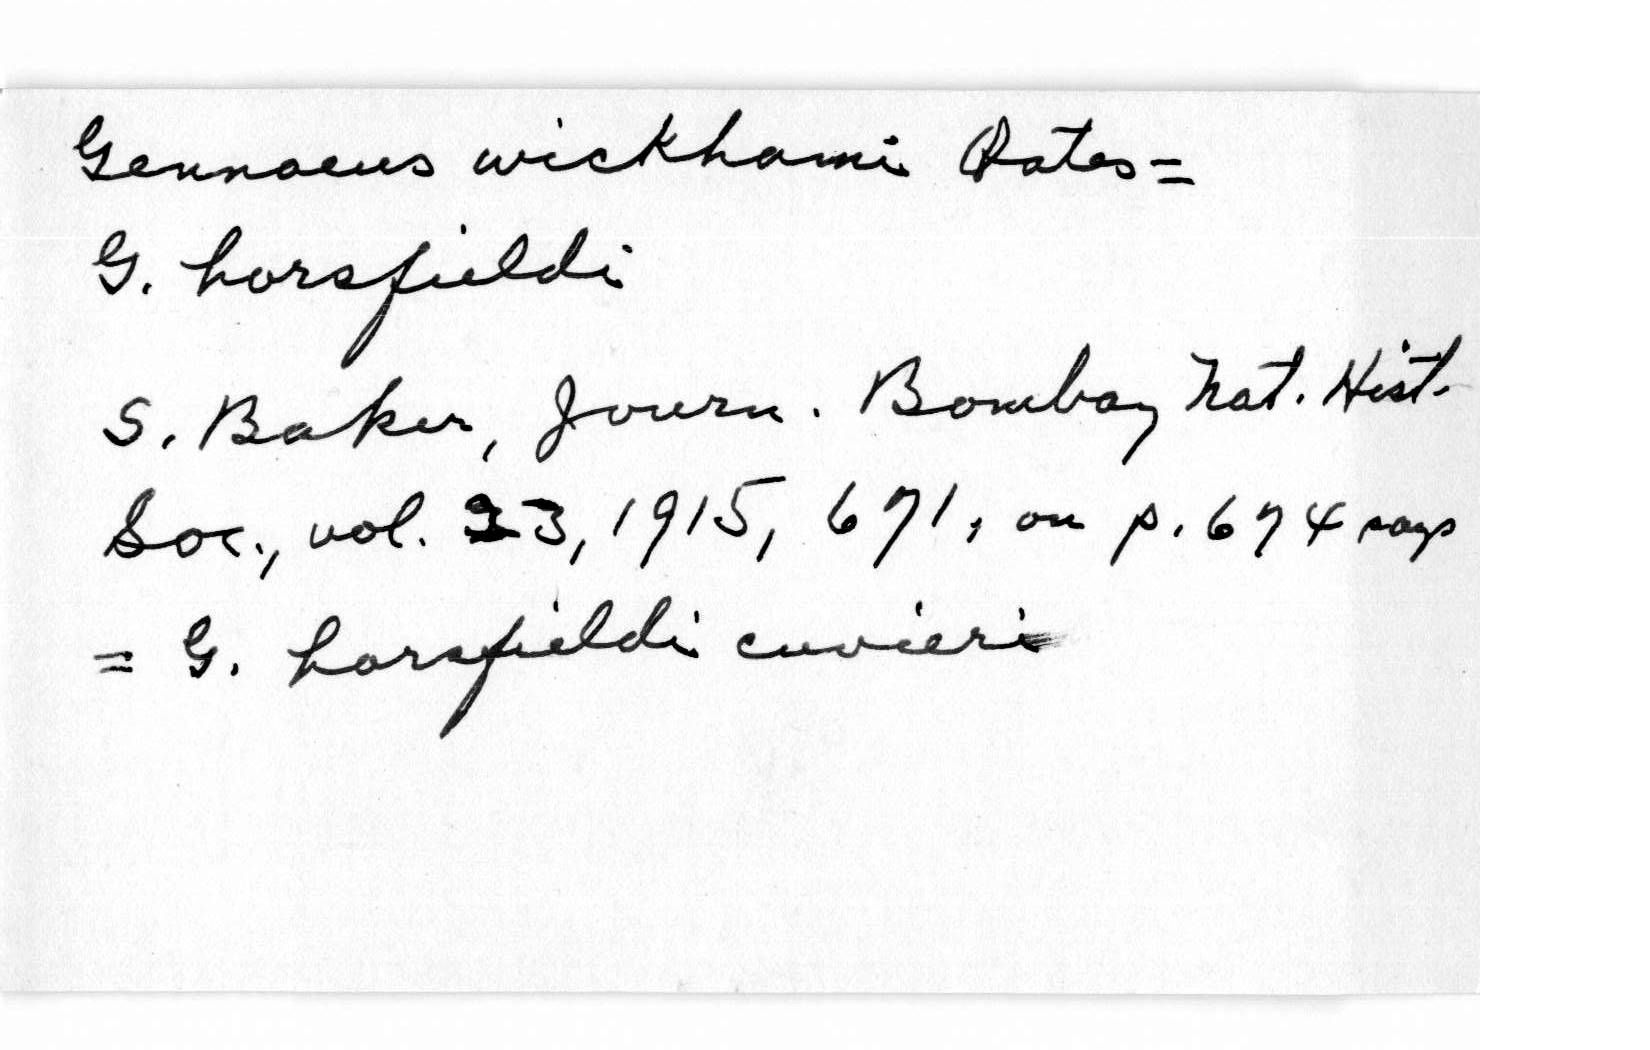 Gennaeus wickhami Oates =
G. horsfieldi
S. Baker, Journ. Bombay Nat. Hist.
Soc., vol. 23, 1915, 671; on p. 674 says
= G. horsfieldi cuvieri